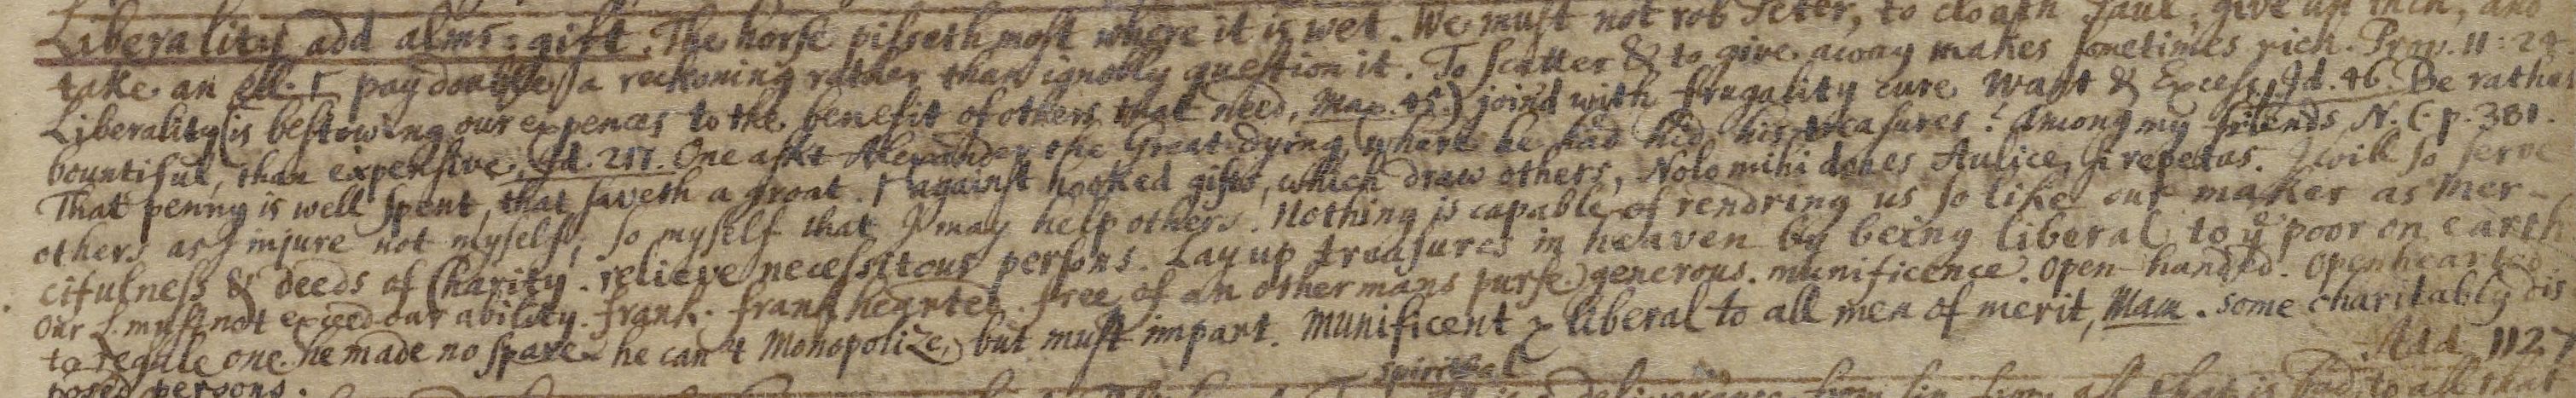 Liberality add alms = gift. The horse pisseth most where it is wet. We must not rob Peter, to cloath Paul; give an inch, and
take an ell. pay double a reckoning rather than ignobly question it. To scatter & to give away makes sometimes rich. Prov. 11:24
Liberality (is bestowing our expences to the benefit of others that need, Max. 45.) joind with frugality cure Want & Excess, Id. 46. Be rather
bountiful, than expensive, Id. 217. One askt Alexander the Great dying, where he had hid his treasures? among my friends, N. C. p. 381.
That penny is well spent, that saveth a groat. against hooked gifts, which draw others, Nolo mihi dones Aulice, si repetas. I will so serve
others as I injure not myself; so myself that I may help others. Nothing is capable of rendring us so like our maker as mer-
cifulness & deeds of Charity. relieve necessitous persons. Lay up treasures in heaven by being liberal to yͤ poor on earth
Our L. must not exceed our ability. frank. frank hearted. free of an other mans purse. generous. munificence. Open-handed. Openhearted
to regale one. he made no spare. he can't Monopolize, but must impart. Munificent & liberal to all men of merit, Max. some charitably dis
posed persons. Add 1127
spiritual
deliverance from sin, from all that is bad, to all that